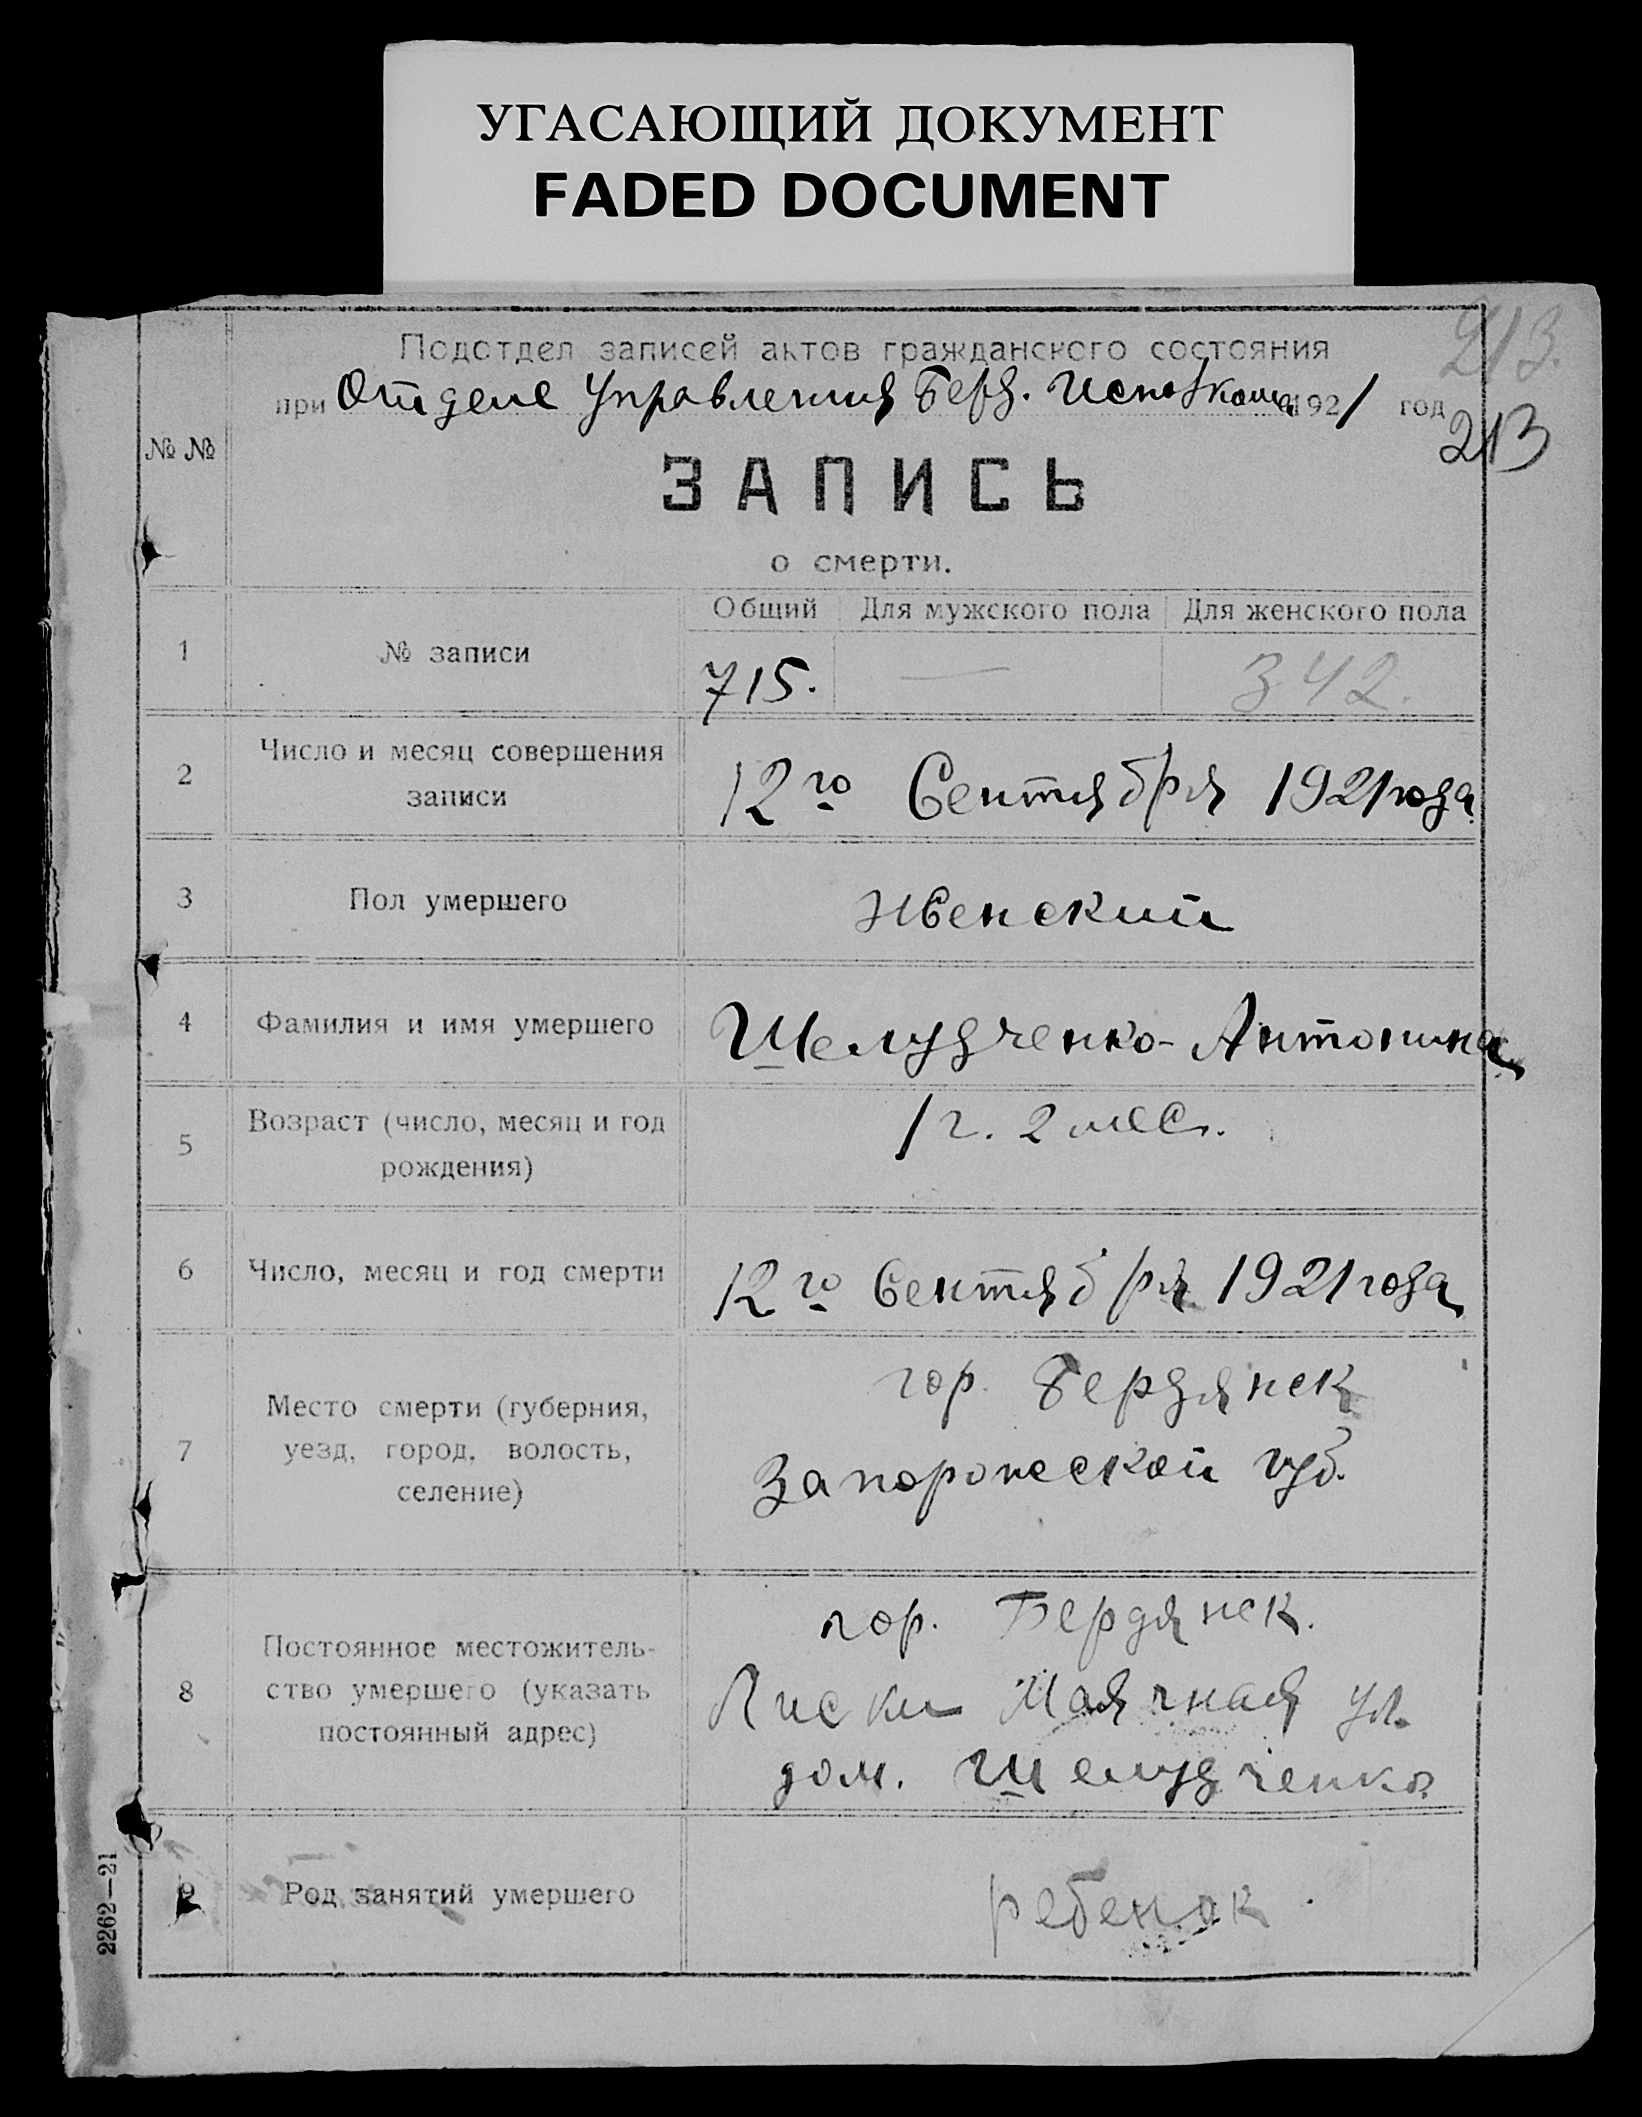 УГАСАЮЩИЙ ДОКУМЕНТ
FADED DOCUMENT
213.
Подотдел записей актов гражданского состояния
при Отделе Управления Берд. Исполкома 1921 год
213
№ №
ЗАПИСЬ
о смерти.
Общий Для мужского пола Для женского пола
1 № записи 715. — 342.
2 Число и месяц совершения
записи
12го Сентября 1921 года
3 Пол умершего Женский
4 Фамилия и имя умершего Шелудченко - Антонина
5 Возраст (число, месяц и год
рождения)
1 г. 2 мес.
6 Число, месяц и год смерти 12го Сентября 1921 года
7 Место смерти (губерния,
уезд, город, волость,
селение)
гор. Бердянск
Запорожской губ.
8 Постоянное местожитель-
ство умершего (указать
постоянный адрес)
гор. Бердянск.
Лиски Маячная ул.
дом. Шелудченко
9 Род занятий умершего ребенок
2262—21